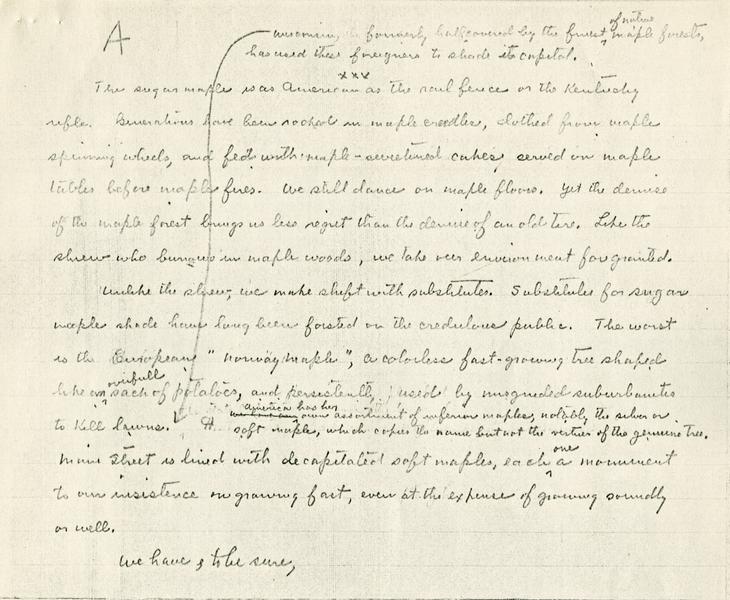 A
Wisconsin, formerly half covered by the finest of native maple forests,
has used these foreigners to shade its capitol.
xxx
The sugar maple is as American as the rail fence or the Kentucky
rifle. Generations have been rocked in maple cradles, clothed from maple
spinning wheels, and fed with maple-sweetened cakes served on maple
tables before maple fires. We still dance on maple floors. Yet the demise
of the maple forest brings us less regret than the demise of an old tire. Like the
shrew who burrows in maple woods, we take our environment for granted.
Unlike the shrew, we make shift with substitutes. Substitutes for sugar
maple shade have long been foisted on the credulous public. The worst
is the European "norway maple", a colorless fast-growing tree shaped
like an overfull sack of potatoes, and persistently used by misguided suburbanites
to kill lawns. America has her own assortment of inferior maples, notably the silver or
soft maple, which copies the name but not the virtues of the genuine tree.
Main Street is lined with decapitated soft maples, each one a monument
to our insistence on growing fast, even at the expense of growing soundly
or well.
We have, to be sure,